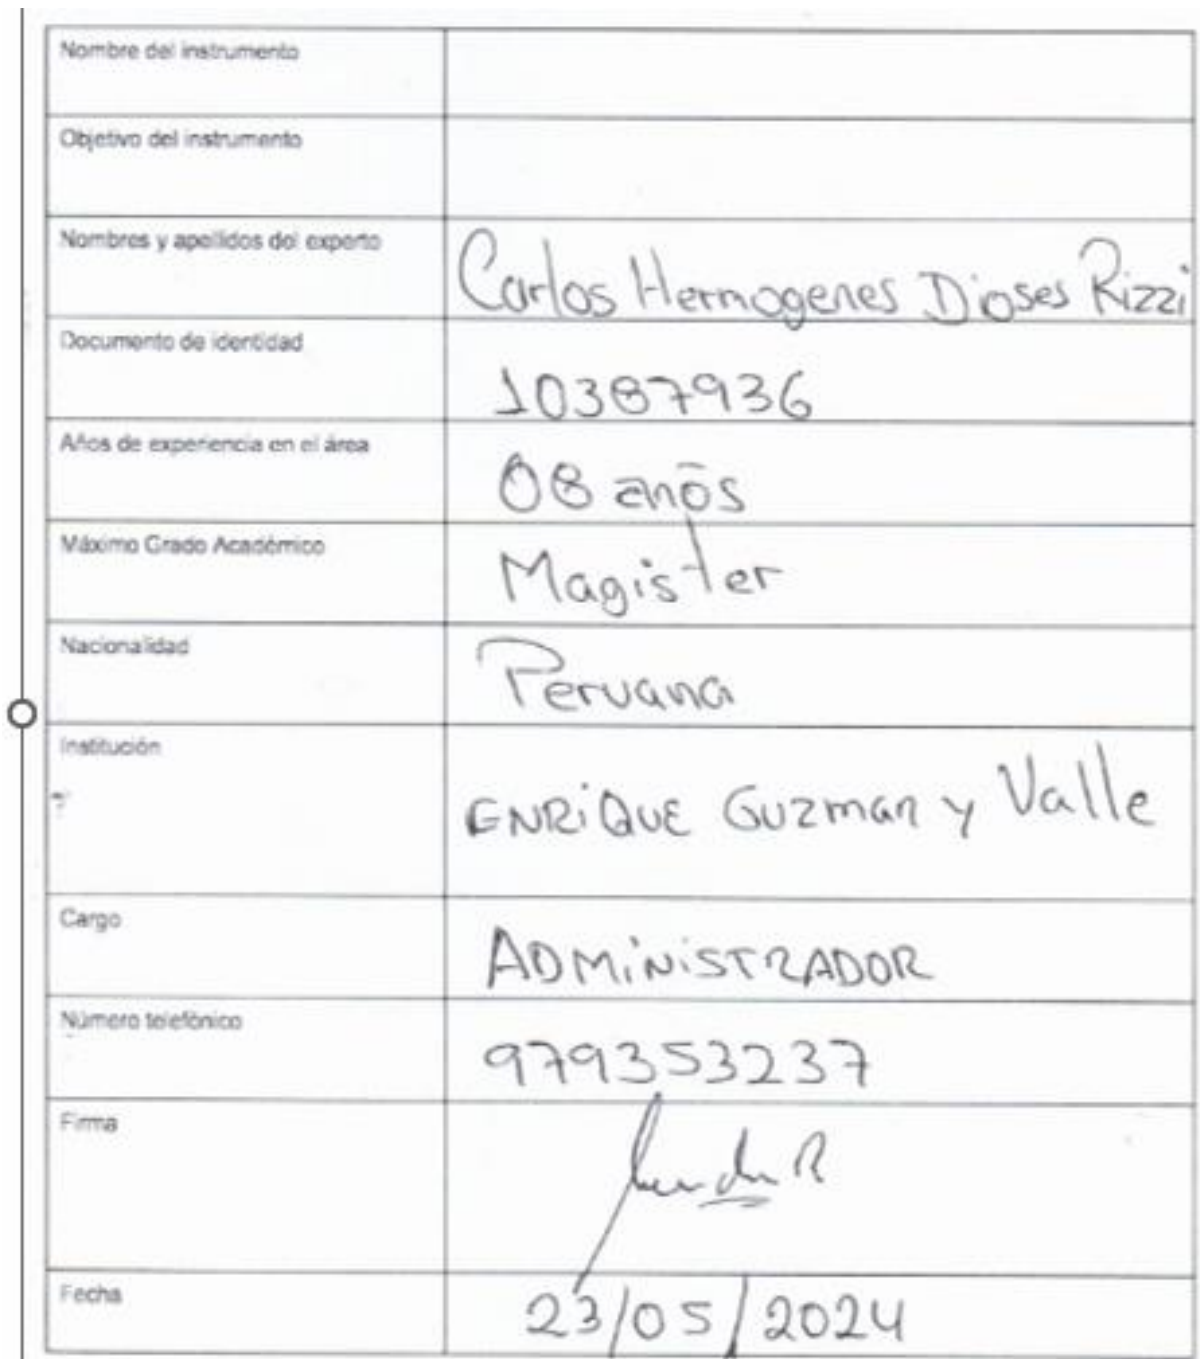 Nombre del instrumento
Objetivo del instrumento
Nombres y apellidos del experto
Carlos Hermogenes Dioses Rizzi
Documento de identidad
10387936
Años de experiencia en el área
08 anõs
Máximo Grado Académico
Magister
Nacionalidad
Peruana
Institución
ENRiQUE GUZman y Valle
Cargo
ADMiNiSTRADOR
Número telefónico
979353237
Firma
Fecha
23/05/2024